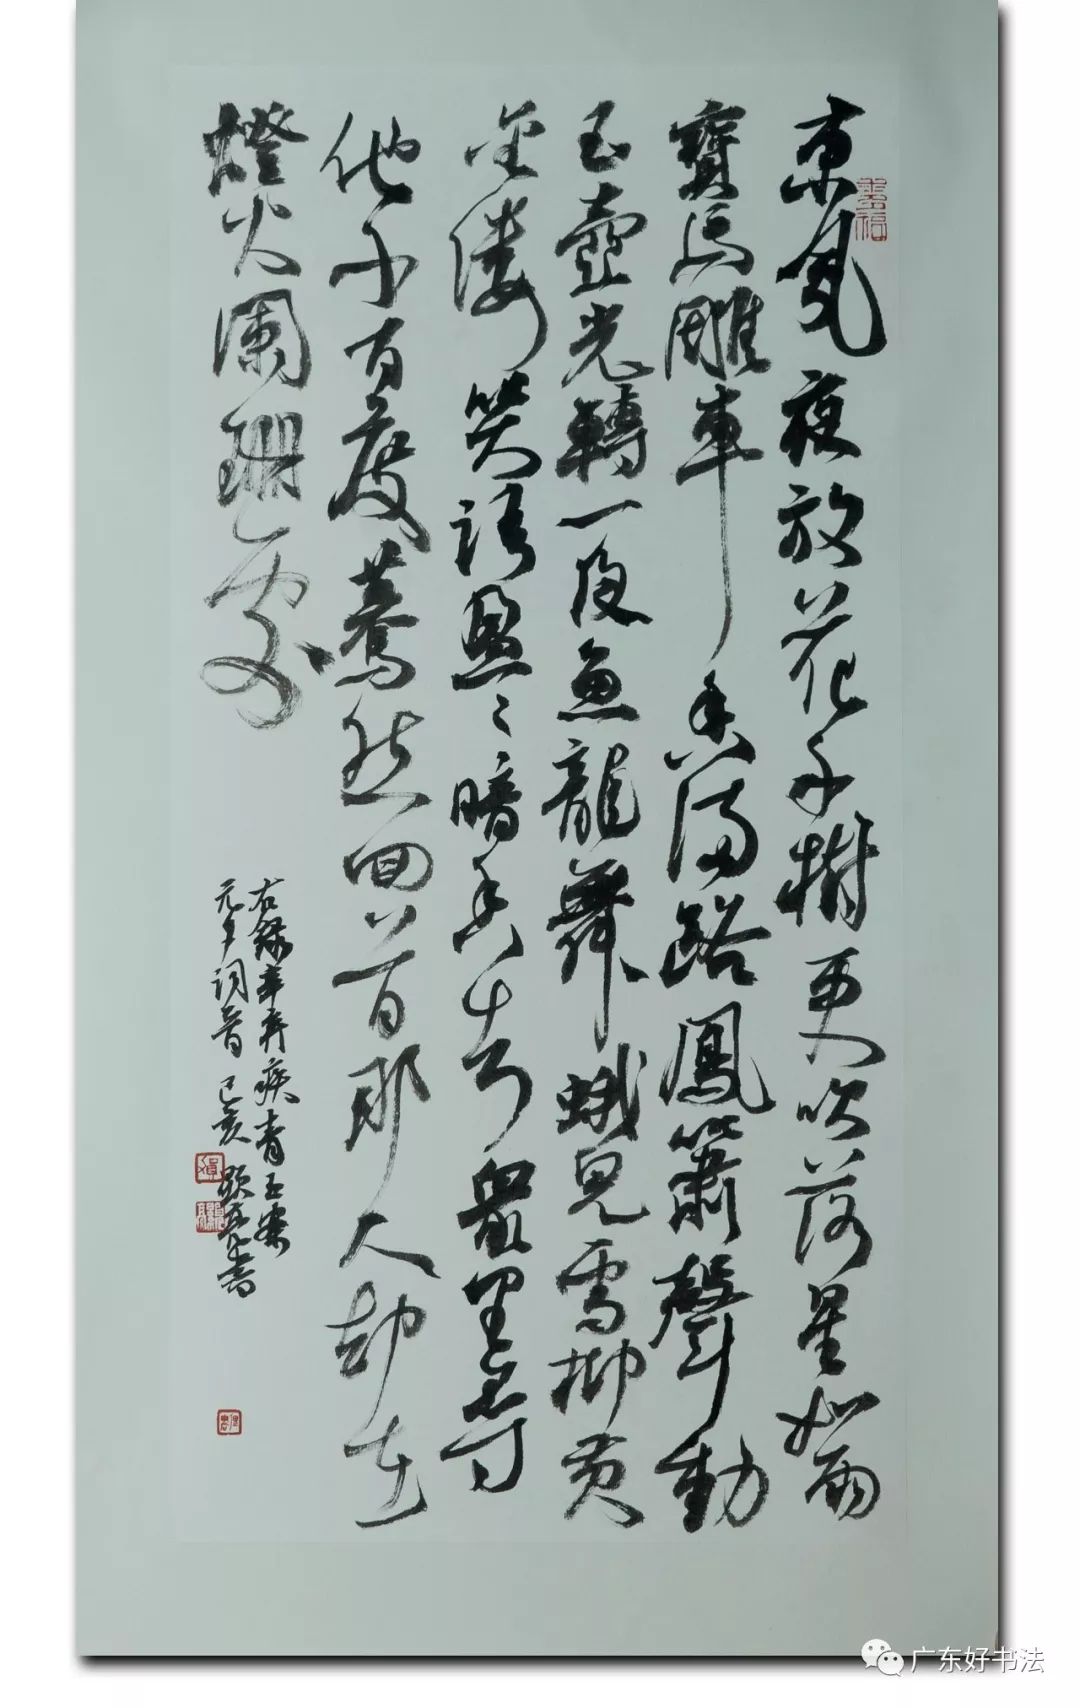 東風夜放花千樹更吹落星如雨
寶馬雕車香滿路鳳簫聲動
玉壺光轉一夜魚龍舞蛾兒雪柳黃
金縷笑語盈〻暗香去衆里尋
他千百度驀然回首那人却在
燈火闌珊處
右錄辛弃疾青玉案
元夕詞一首 己亥 書
广东好书法